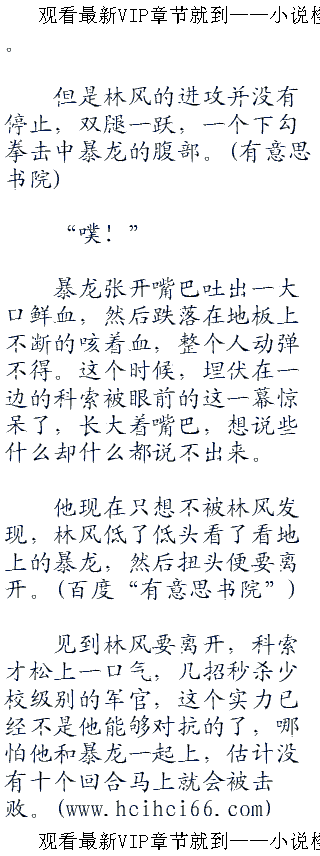 观看最新VIP章节就到——小说
。
但是林风的进攻并没有
停止，双腿一跃，一个下勾
拳击中暴龙的腹部。(有意思
书院)
“噗！”
暴龙张开嘴巴吐出一大
口鲜血，然后跌落在地板上
不断的咳着血，整个人动弹
不得。这个时候，埋伏在一
边的科索被眼前的这一幕惊
呆了，长大着嘴巴，想说些
什么却什么都说不出来。
他现在只想不被林风发
现，林风低了低头看了看地
上的暴龙，然后扭头便要离
开。(百度“有意思书院”)
见到林风要离开，科索
才松上一口气，几招秒杀少
校级别的军官，这个实力已
经不是他能够对抗的了，哪
怕他和暴龙一起上，估计没
有十个回合马上就会被击
败。(www.hcihci66.com)
观看最新VIP章节就到——小说